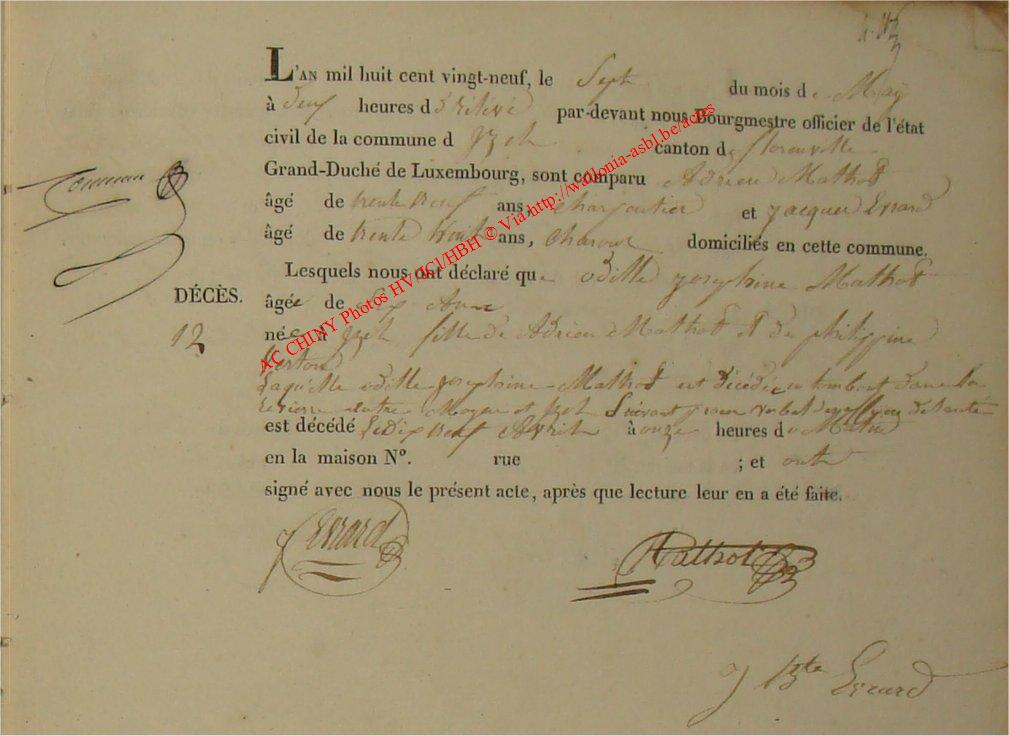 L'AN mil huit cent vingt-neuf, le Sept du mois de May
à neuf heures d par-devant nous Bourgmestre officier de l'état
civil de la commune d Izel canton de florenville
Grand-Duché de Luxembourg, sont comparu Adrien Mathot
âgé de trente neuf ans, Charpentier et Jacques Errard
âgé de trente ans, domiciliés en cette commune.
Lesquels nous ont déclaré que odille josephine Mathot
DÉCÈS.
âgée de Six Anne
12
née à Izel fille de Adrien Mathot et de philippine
Laquelle odille josephine Mathot est décédée en tombant dans la
entre Moyen et Izel Suivant procu verbal
est décédé Le Dix neuf Avril à onze heures du Matin
en la maison N°. rue ; et ont
signé avec nous le présent acte, après que lecture leur en a été faite.
J Errard
Mathot
J Bte Errard
AC CHINY Photos HV/JCl/HBH © Via http://wallonia-asbl.be/actes